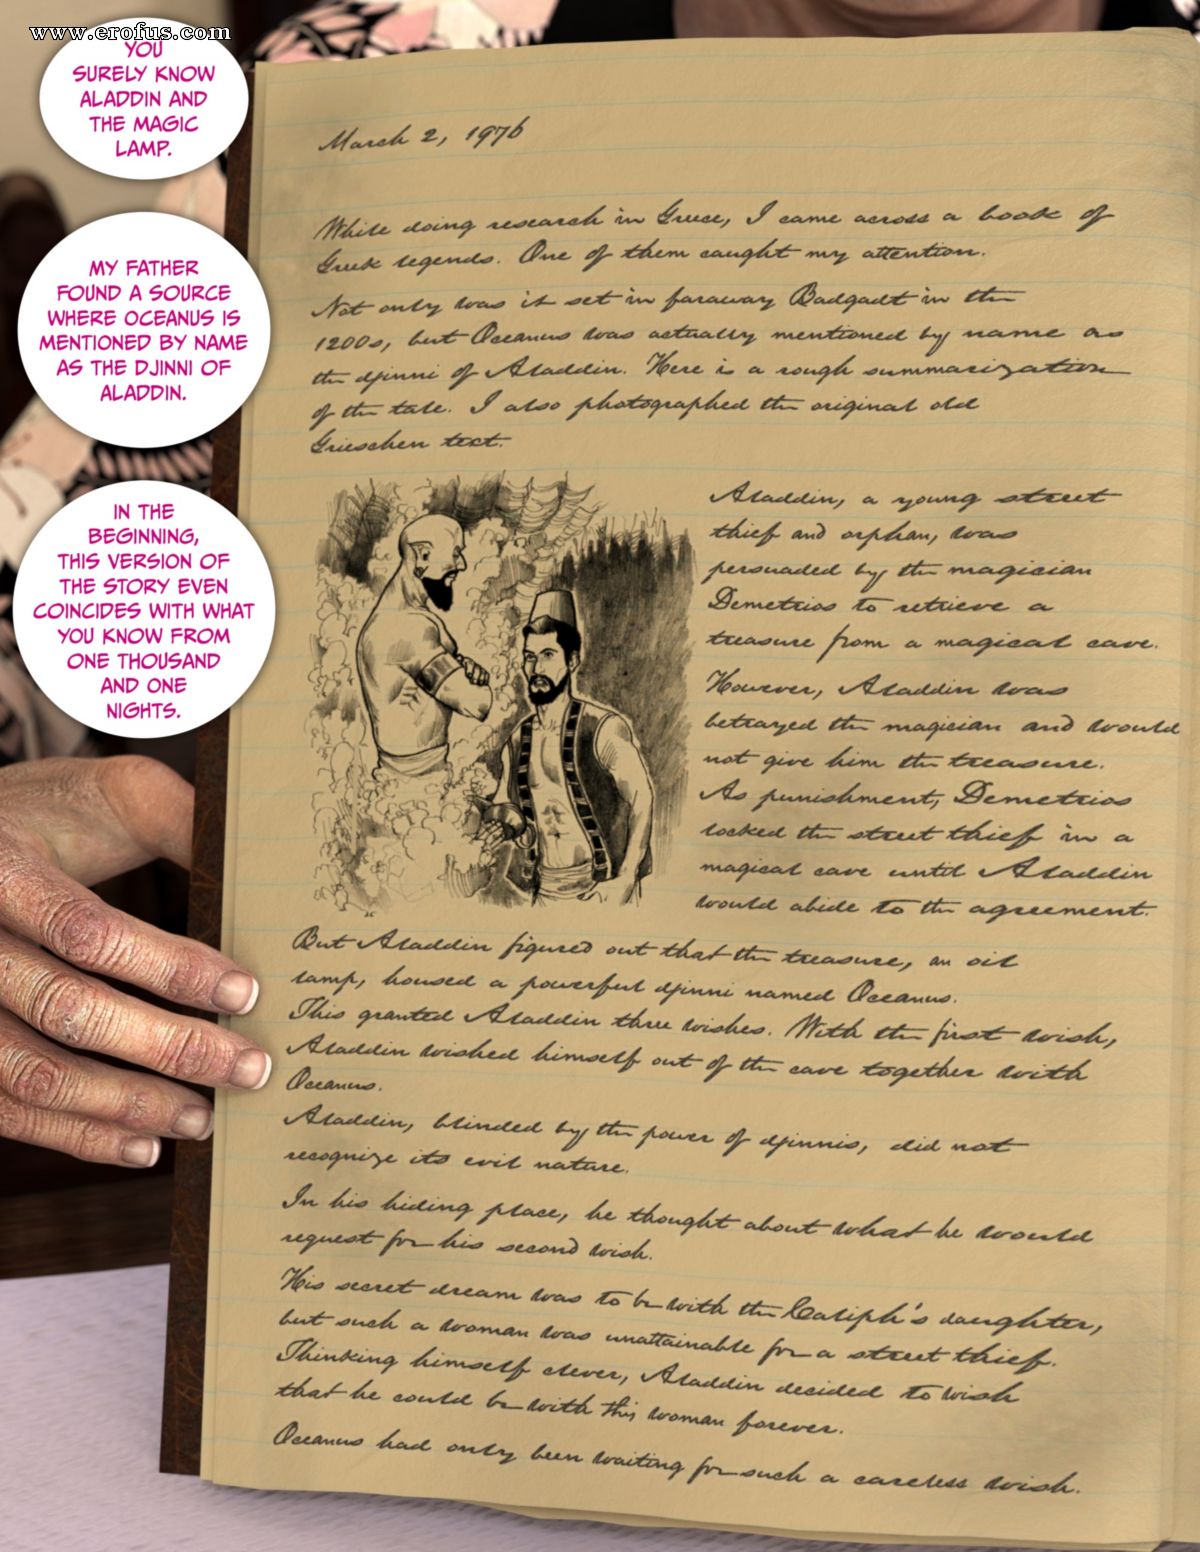 www.erofus.com
YOU
SURELY KNOW
ALADDIN AND
THE MAGIC
LAMP.
MY FATHER
FOUND A SOURCE
WHERE OCEANUS IS
MENTIONED BY NAME
AS THE DJINNI OF
ALADDIN.
IN THE
BEGINNING,
THIS VERSION OF
THE STORY EVEN
COINCIDES WITH WHAT
YOU KNOW FROM
ONE THOUSAND
AND ONE
NIGHTS.
March 2, 1976
While doing research in Greece, I came across a book of
Greek legends. One of them caught my attention.
Not only was it set in faraway Badgadt in the
1200s, but Oceanus was actually mentioned by name as
the djinni of Aladdin. Here is a rough summarization
of the tale. I also photographed the original old
Grieschen text.
Aladdin, a young street
thief and orphan, was
persuaded by the magician
Demetrios to retrieve a
treasure from a magical cave.
However, Aladdin was
betrayed the magician and would
not give him the treasure.
As punishment, Demetrios
locked the street thief in a
magical cave until Aladdin
would abide to the agreement.
But Aladdin figured out that the treasure, an oil
lamp, housed a powerful djinni named Oceanus.
This granted Aladdin three wishes. With the first wish,
Aladdin wished himself out of the cave together with
Oceanus.
Aladdin, blinded by the power of djinnis, did not
recognize its evil nature.
In his hiding place, he thought about what he would
request for his second wish.
His secret dream was to be with the Caliph's daughter,
but such a woman was unattainable for a street thief.
Thinking himself clever, Aladdin decided to wish
that he could be with this woman forever.
Oceanus had only been waiting for such a careless wish.